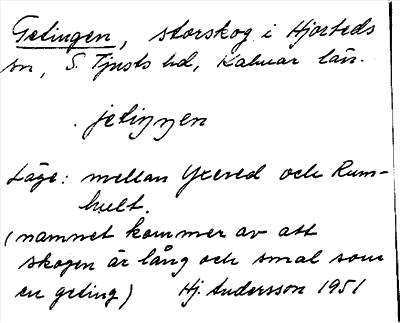 Getingen, storskog i Hjorteds
sn, S. Tjusts hd, Kalmar län.
jetiŋŋen
Läge: mellan Yxered och Rum-
hult.
(namnet kommer av att
skogen är lång och smal som
en geting) Hj. Andersson 1951